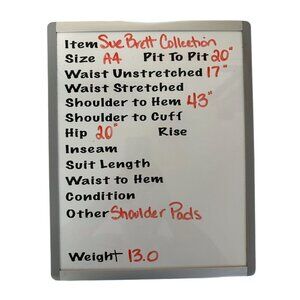 Item Sue Brett Collection
Size A4 Pit To Pit 20"
Waist Unstretched 17"
Waist Stretched
Shoulder to Hem 43"
Shoulder to Cuff
Hip 20" Rise
Inseam
Suit Length
Waist to Hem
Condition
Other Shoulder Pads
Weight 13.0